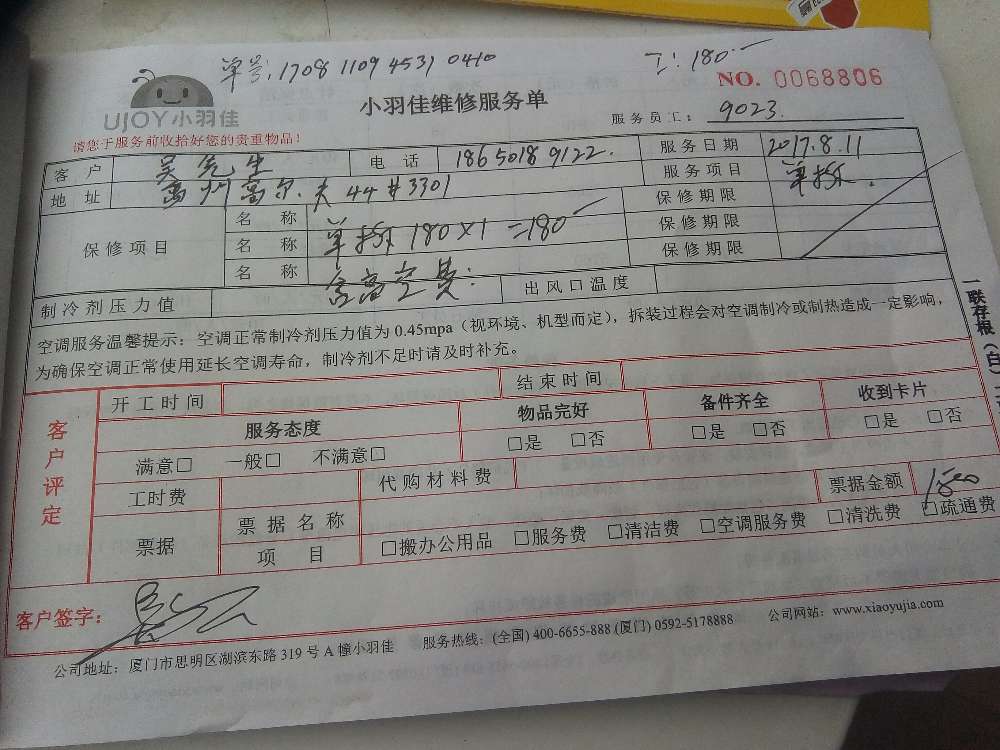 单号:1708 1109 4531 0410
工:180一
NO. 0068806
UJOY小羽佳
小羽佳维修服务单
服务员工: 9023.
请您于服务前收拾好您的贵重物品!
客户 吴先生 电话 18650189122. 服务日期 2017.8.11
地址 高尔夫44#3301 服务项目 单拆.
保修项目
名称 保修期限
名称 单拆180×1=180一 保修期限
名称 含高空费. 保修期限
制冷剂压力值 出风口温度
空调服务温馨提示:空调正常制冷剂压力值为 0.45mpa(视环境、机型而定),拆装过程会对空调制冷或制热造成一定影响,
为确保空调正常使用延长空调寿命,制冷剂不足时请及时补充。
一联存根(白)
客户评定
开工时间 结束时间
服务态度 物品完好 备件齐全 收到卡片
满意□ 一般□ 不满意□ □是 □否 □是 □否 □是 □否
工时费 代购材料费 票据金额
票据 票据名称
项目 □搬办公用品 □服务费 □清洁费 □空调服务费 □清洗费 □疏通费
客户签字:
公司地址:厦门市思明区湖滨东路 319 号 A 幢小羽佳 服务热线:(全国) 400-6655-888 (厦门) 0592-5178888 公司网站:www.xiaoyujia.com